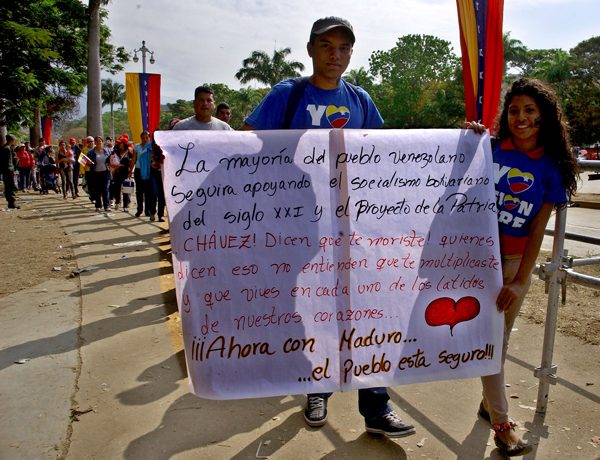 La mayoría del pueblo venezolano
seguira apoyando el socialismo bolivariano
del siglo XXI y el Proyecto de la Patria
¡CHÁVEZ! Dicen que te moriste! quienes
dicen eso no entienden que te multiplicaste
y que vives en cada uno de los latidos
de nuestros corazones...
¡¡¡Ahora con Maduro...
...el Pueblo esta seguro!!!
YO